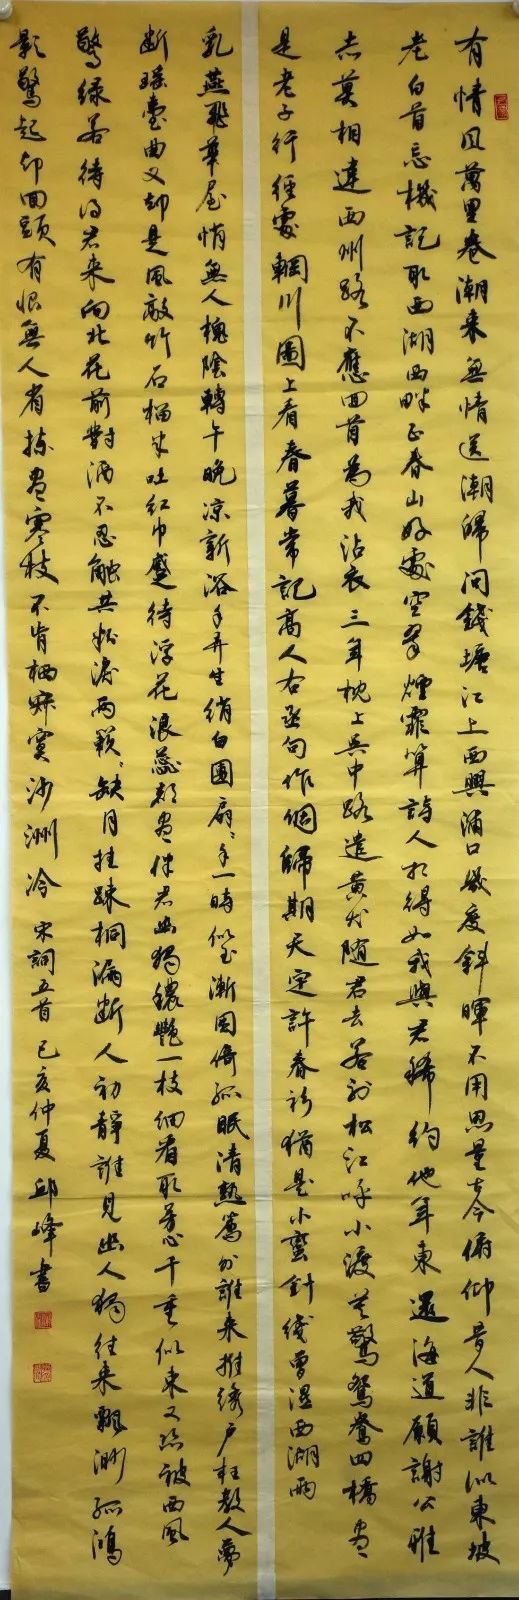 有情風萬里卷潮來無情送潮歸問錢塘江上西興浦口幾度斜暉不用思量古今俯仰昔人非誰似東坡
老白首忘機記取西湖西畔正春山好處空翠煙霏算詩人相得如我與君稀約他年東還海道願謝公雅
志莫相違西州路不應回首為我沾衣三年枕上吳中路遣黃犬隨君去若到松江呼小渡莫驚鴛鷺四橋盡
是老子行經處輞川圖上看春暮常記高人右丞句作個歸期天定許春衫猶是小蠻針線曾濕西湖雨
乳燕飛華屋悄無人槐陰轉午晚涼新浴手弄生綃白團扇扇手一時似玉漸困倚孤眠清熟簾外誰來推繡戶枉教人夢
斷瑤臺曲又卻是風敲竹石榴半吐紅巾蹙待浮花浪蕊都盡伴君幽獨穠艷一枝細看取芳心千重似束又恐被西風
驚綠若待得君來向此花前對酒不忍觸共粉淚兩簌簌缺月挂疎桐漏斷人初靜誰見幽人獨往來飄渺孤鴻
影驚起却回頭有恨無人省揀盡寒枝不肯栖寂寞沙洲冷 宋詞五首 己亥仲夏 邱峰書